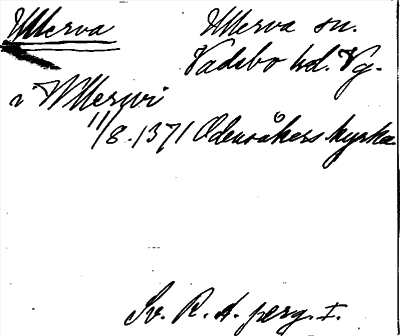 Ullerva
Ullerva sn.
Vadsbo hd. Vg.
i Wllerwi
11/8 1371 Odensåkers kyrka
Sv. R. A. perg. I.